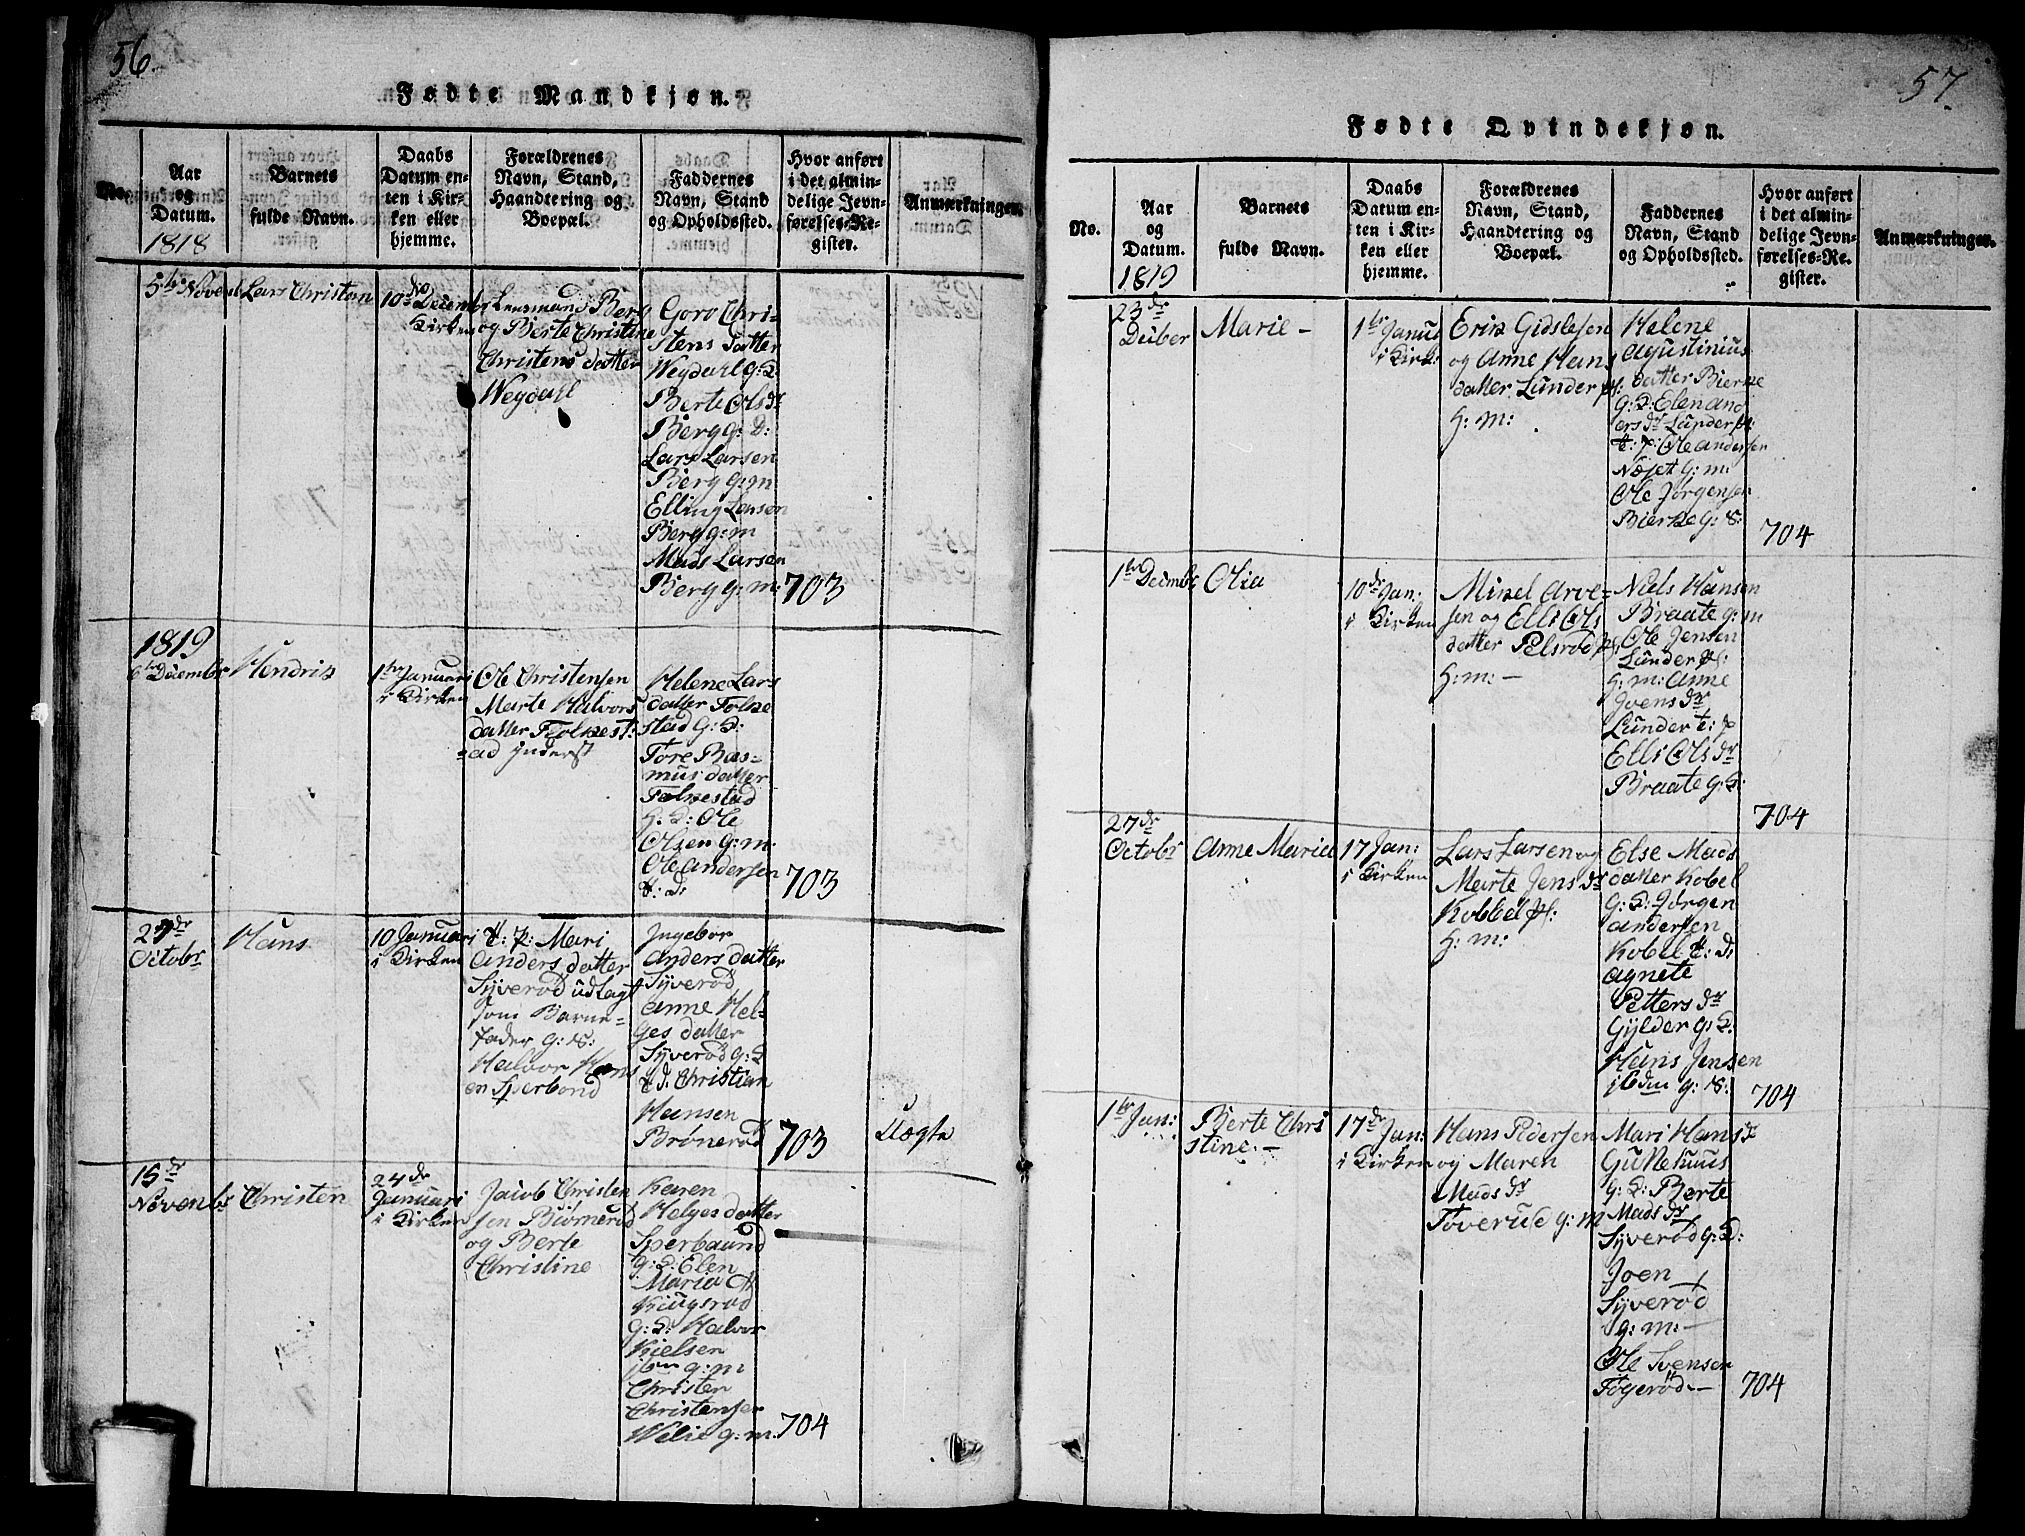 56.
Fødte Mandkjøn.
No.
Aar
og
Datum.
1818
Barnets
fulde Navn.
Daabs
Datum en-
ten i Kir-
ken eller
hjemme.
Forældrenes
Navn, Stand,
Haandtering og
Boepæl.
Faddernes
Navn, Stand
og Opholdssted.
Hvor anført
i det almin-
delige Jevn-
førelses-Re-
gister.
Anmærkninger.
5te Novemb
Lars Christen
10de Decembr
Kirken
Lensmand Berg
og Berte Christine
Christens datter
Weydahl
Goro Chri-
stens Datter
Weydahl g: D:
Berte Ols dr
Berg g: D:
Lars Larsen
Berg g: m
Elling Larsen
Berg g: m
Mads Larsen
Berg g: m:
703
1819
6te Decembr
Hendrik
1te Januari
i Kirken
Ole Christensen
Marte Halvors
datter Folkest:
ad Inderst
Helene Lars
datter Folke
stad g: D:
Tore Ras-
mus datter
Folkestad
h: D: Ole
Olsen g: m:
Ole Andersen
t: d:
703
27de
Octobr
Hans
10 Januari
i Kirken
t: p: Mari
Anders datter
Syverød udlagt
som Barne-
fader g: s:
Halvor Hans
en Sperbond
Ingebor
Anders datter
Syverød
Anne Hel-
ges datter
Syverød g: D
t d: Christian
Hansen
Brønerød
703
Uægte
15de
Novenbr
Christen
24de
Januari
i Kirken
Jacob Christen
sen Biørnerød
og Berte
Christine
Karen
Helges datter
Sperbaund
g: D: Elen
Maria
Kiugsrød
g: D: Halvor
Kielsen
ibn g: m
Christen
Christensen
Welie g: m.
704
57.
Fødte Qvindekjøn.
No.
Aar
og
Datum.
1819
Barnets
fulde Navn.
Daabs
Datum en-
ten i Kir-
ken eller
hjemme.
Forældrenes
Navn, Stand,
Haandtering og
Boepæl.
Faddernes
Navn, Stand
og Opholdssted.
Hvor anført
i det almin-
delige Jevn-
førelses-Re-
gister.
Anmærkninger.
23de
Deciber
Marie -
1te Janu
i Kirk:
Erik Gidslesen
og Anne Hans
datter Lunder pl:
h: m:
Helene
Agustinius
datter Bierke
g: D: Elen And
ers dr Lunder pl:
t: p: Ole Andersen
Næset g: m:
Ole Jørgensen
Bierke g: s:
704
1te Decmbr
Olia
10de Jan:
i Kirken
Mikel Arve-
sen og Elli Ols
datter Pelsrød pl:
h: m: -
Niels Hansen
Braate g: m
Ole Jensen
Lunder pl:
h: m: Anne
Ivens dr
Lunder t: p
Elli Ols dr
Braate g: D:
704
27de
Octobr
Anne Maria
17 Jan:
i Kirken
Lars Larsen og
Marte Jens dr
Kobbel pl:
h: m:
Else Mads
datter Kobel
g: D: Jørgen
Andersen
Kobel t: d:
Agnete
Petters dr
Gylder g: D:
Hans Jensen
ibdm g: s:
704
1te Jan:
Berte Chri
stine. -
17de Jan:
i Kirken
Hans Pedersen
og Maren
Mads dr
Toverud g: m
Mari Hans dr
g: D: Berte
Mads dr
Syverød g: D:
Joen
Syverød
g: m: -
Ole Svensen
Togerød. -
704